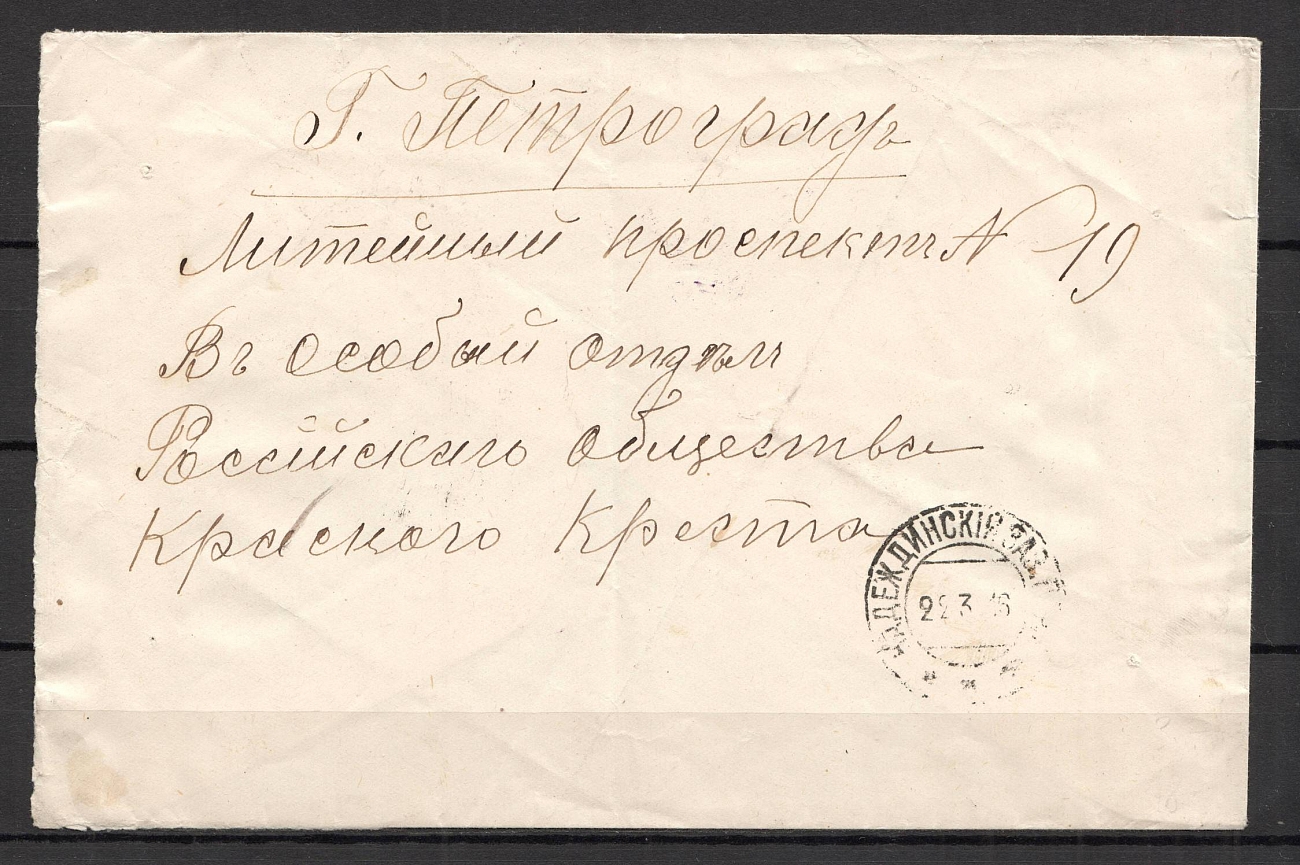 Г. Петроградъ
Литейный проспектъ N 19
Въ Особый отдѣлъ
Россійскаго общества
Краснаго Креста
НАДЕЖДИНСКІЙ ЗАВ.
22 3 16